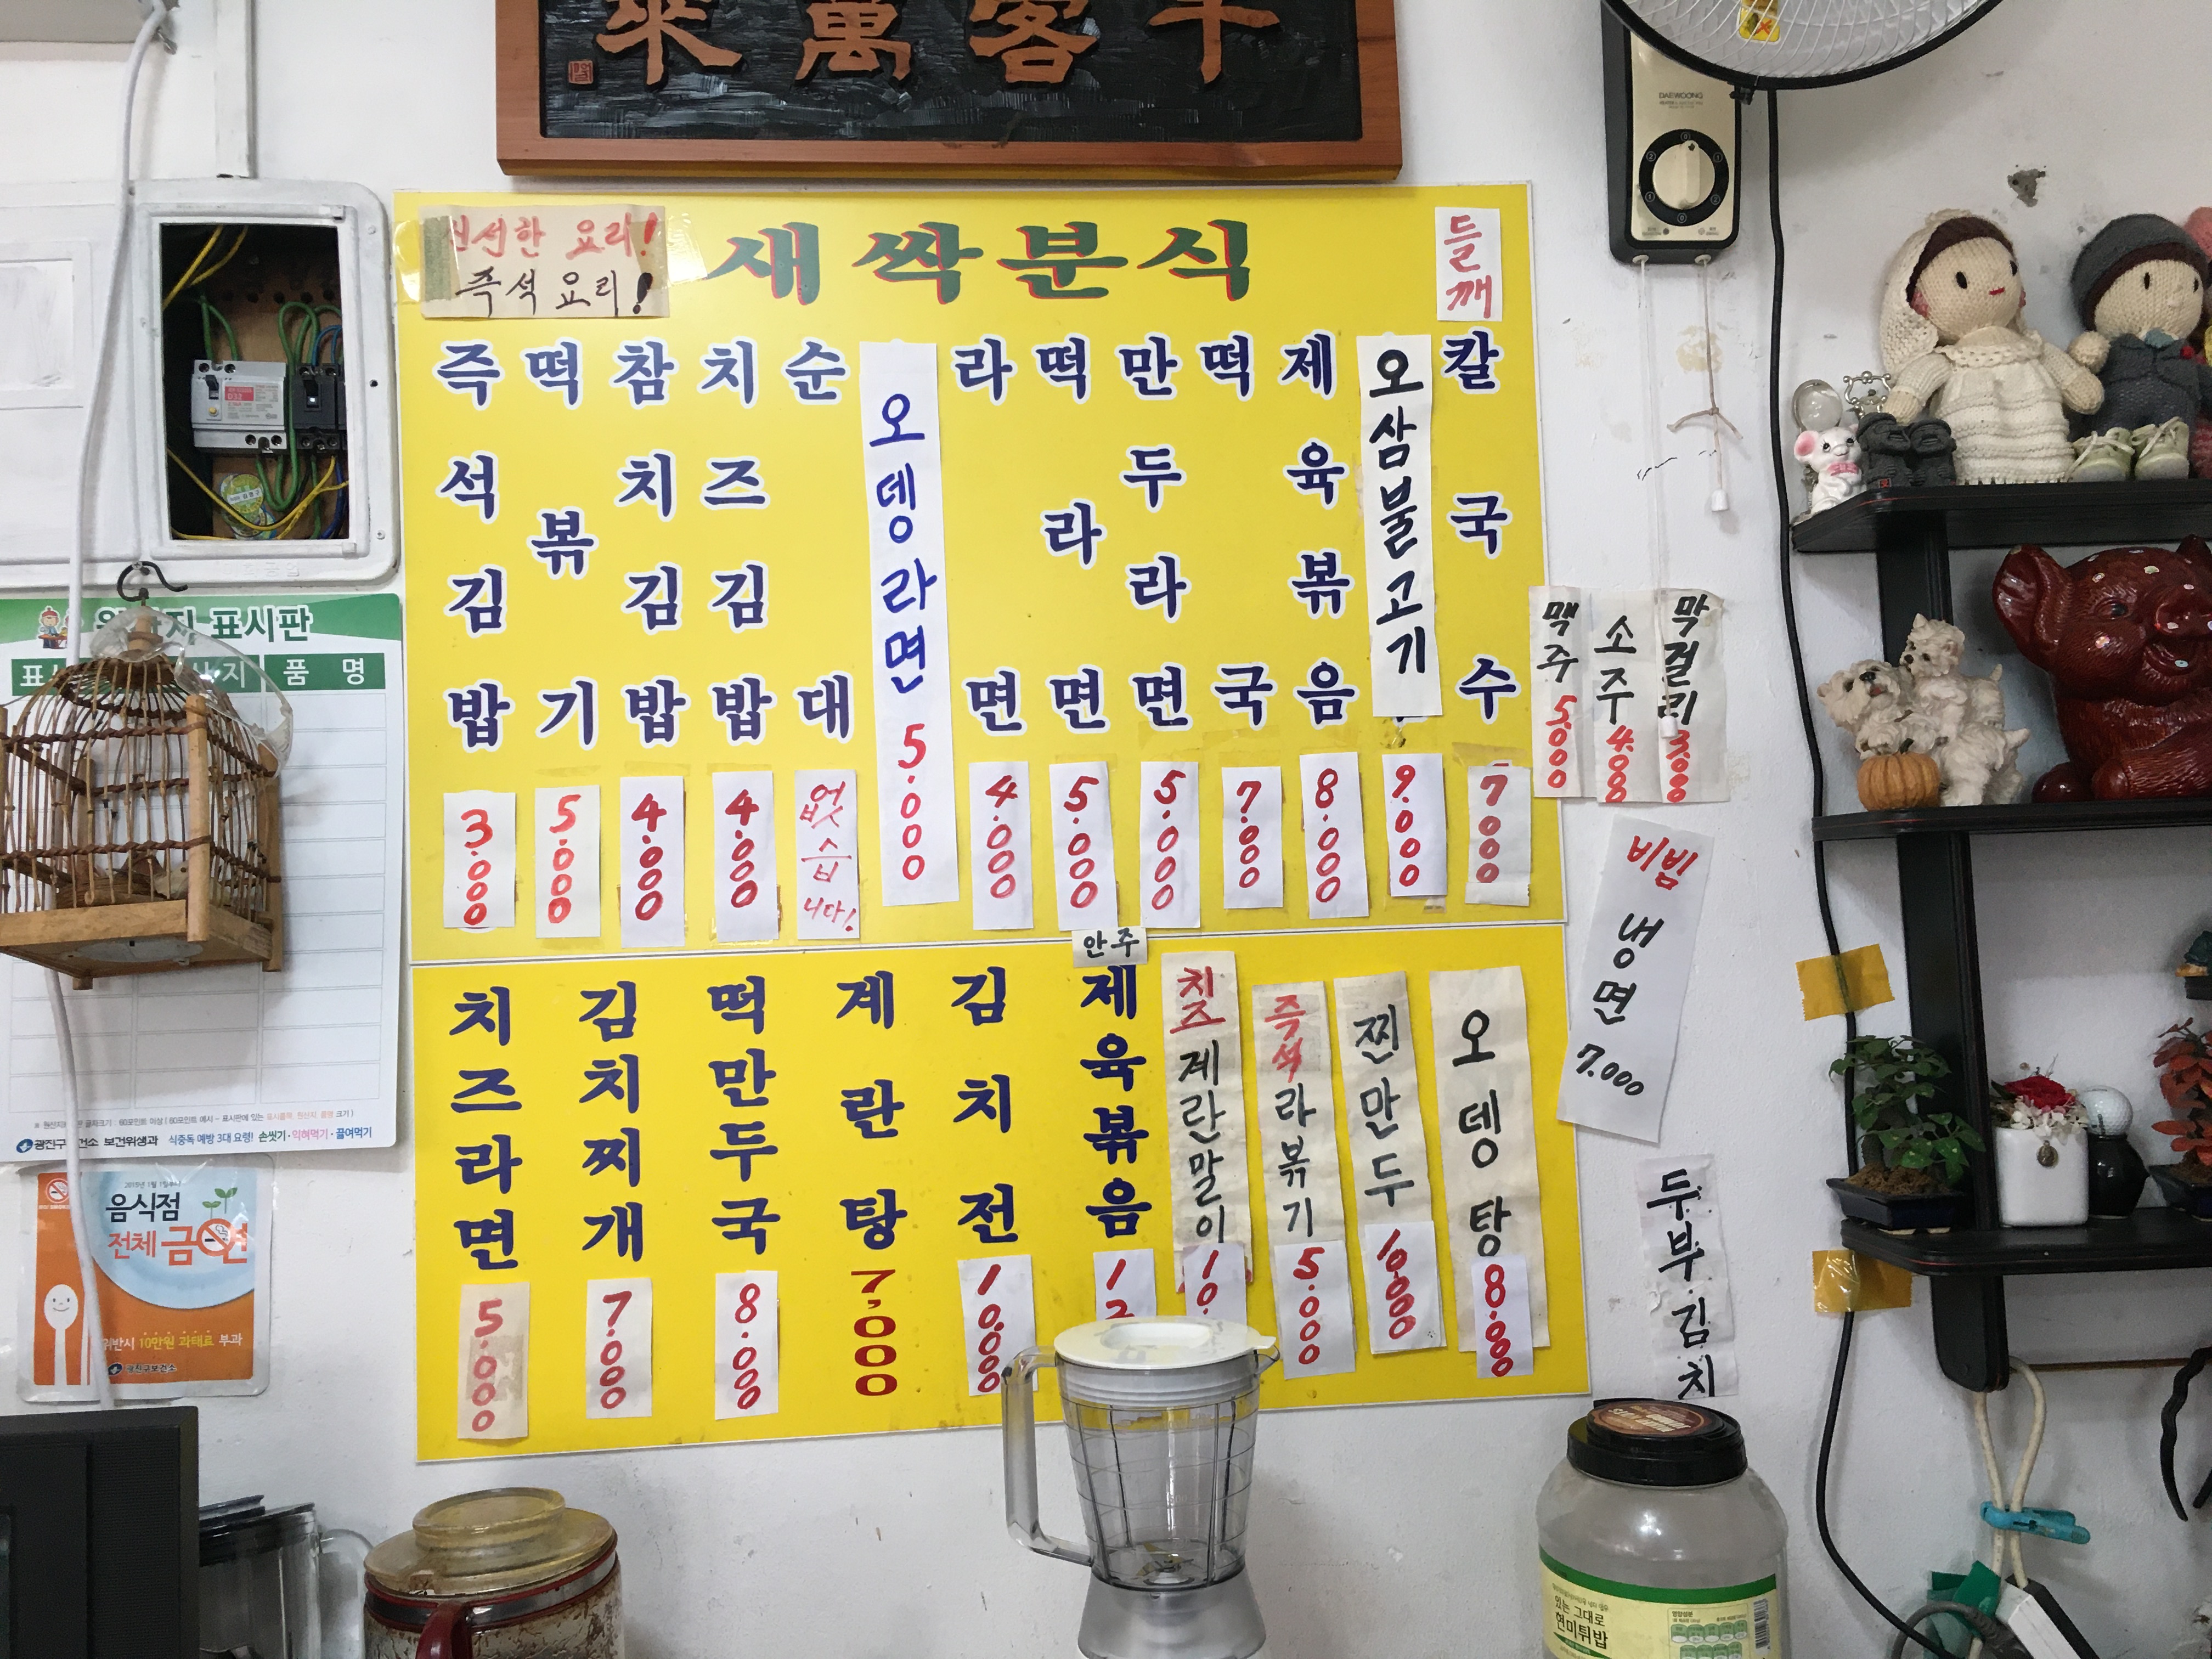 來萬客千
DAEWOONG
신선한 요리!
즉석요리!
새싹분식
즉석김밥 3.000
떡볶기 5.000
참치김밥 4.000
치즈김밥 4.000
순대 없습니다!
오뎅라면 5.000
라면 4.000
떡라면 5.000
만두라면 5.000
떡국 7.000
제육볶음 8.000
오삼불고기 9.000
들깨칼국수 7000
맥주 5.000
소주 4.000
막걸리 3000
비빔냉면 7.000
두부김치
치즈라면 5.000
김치찌개 7.000
떡만두국 8.000
계란탕 7.000
김치전 10.000
안주
제육볶음 12
치즈계란말이 10.
즉석라볶기 5.000
찐만두
오뎅탕 8.000
표시판
품 명
광진구 건소 보건위생과 식중독 예방 3대 요령! 손씻기·익혀먹기·끓여먹기
음식점
전체 금연
위반시 10만원 과태료 부과
광진구보건소
있는 그대로
현미튀밥